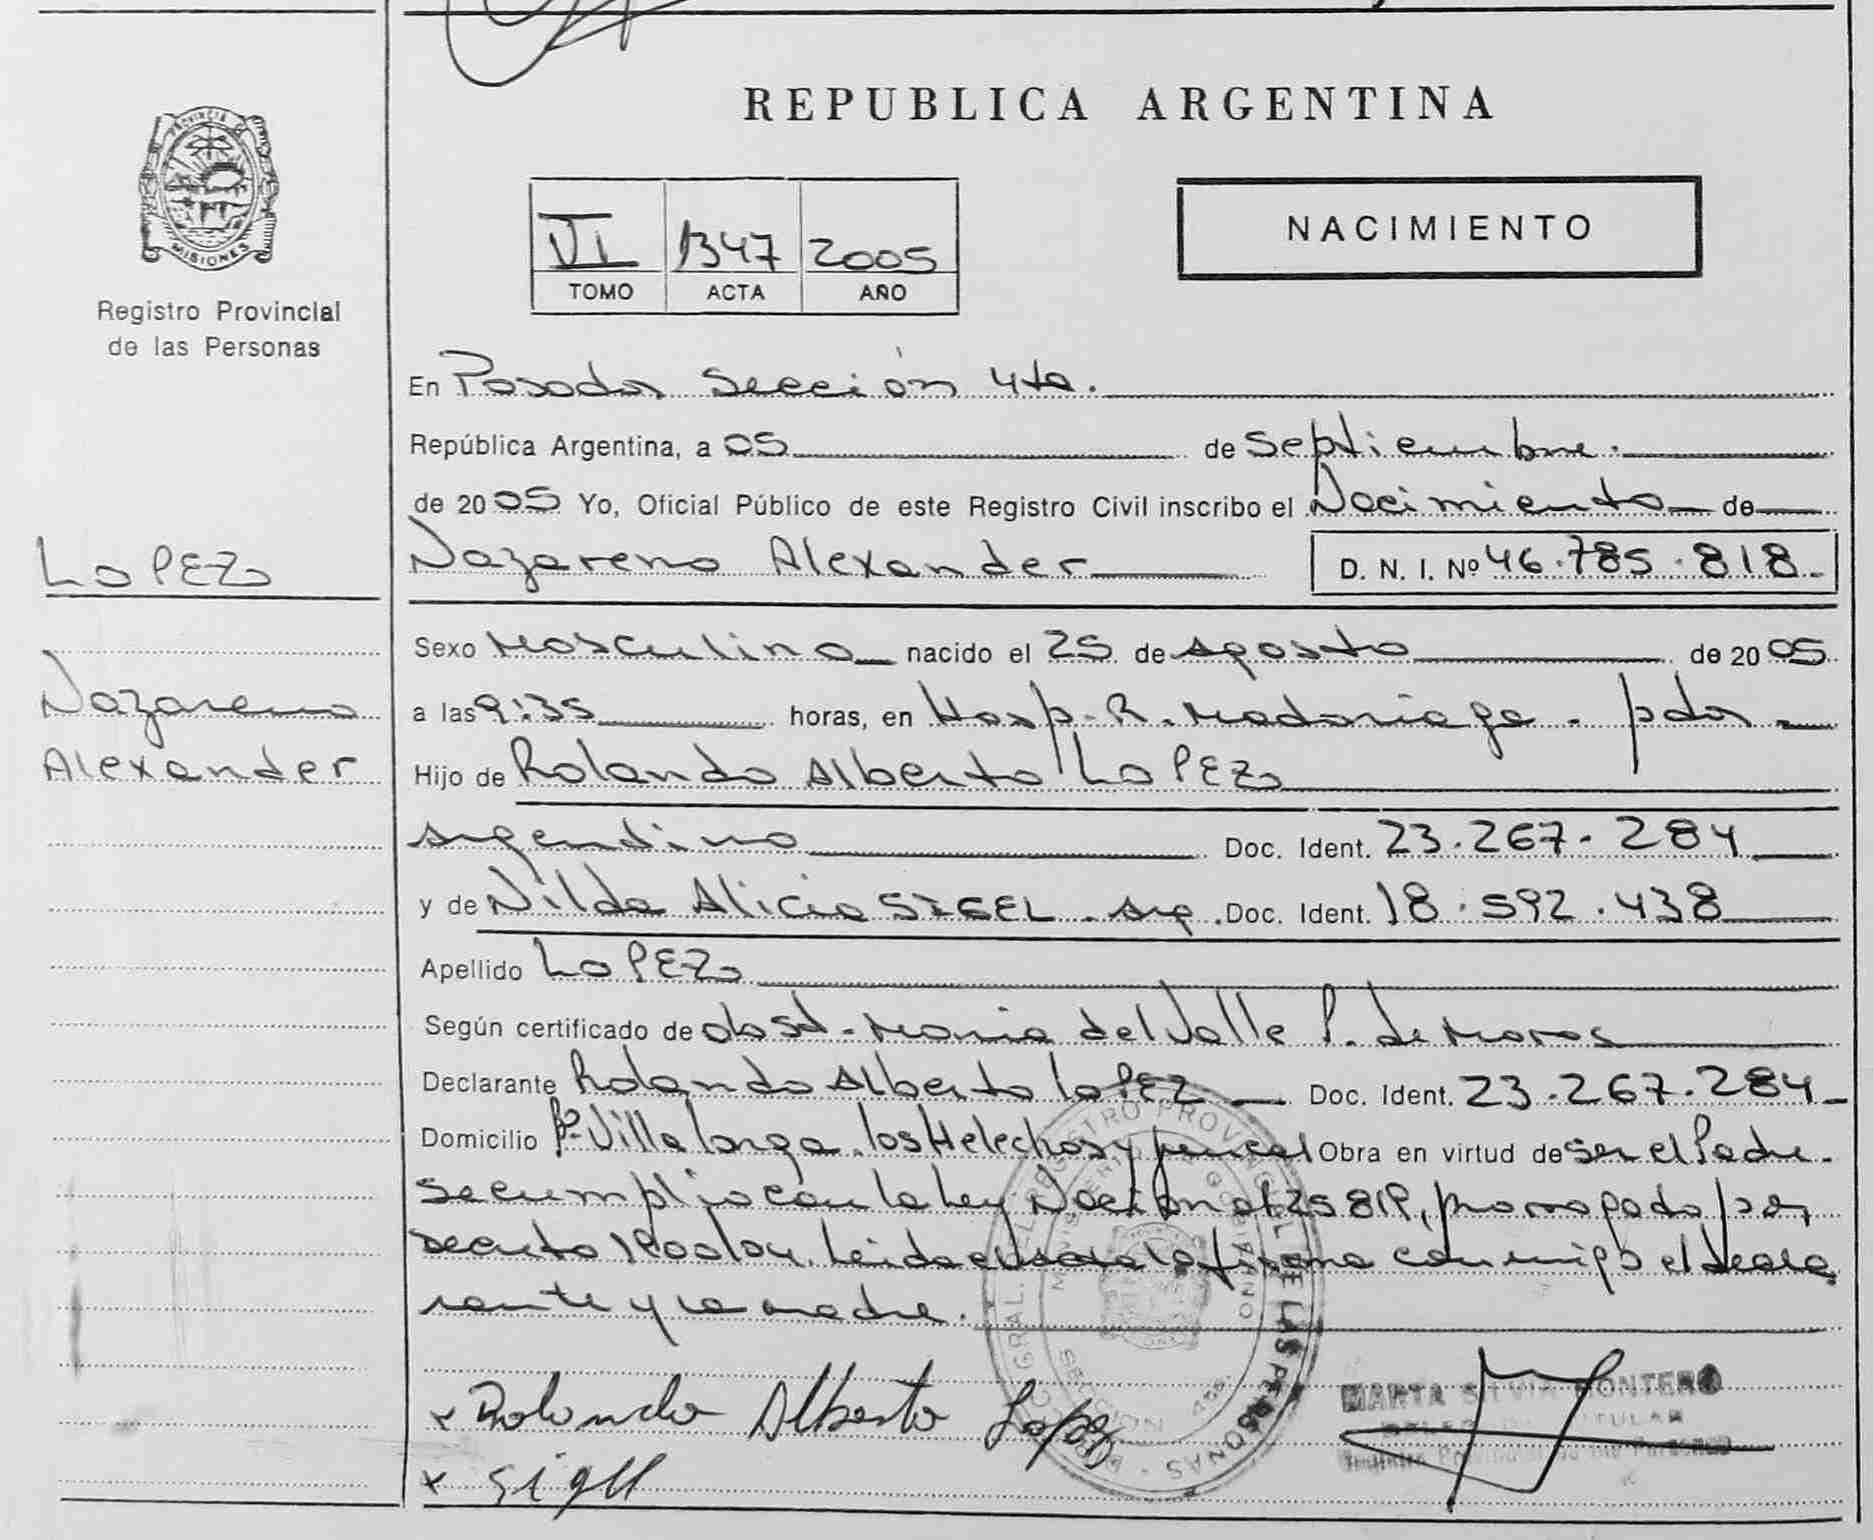 REPUBLICA ARGENTINA
PROVINCIA DE
MISIONES
Registro Provincial
de las Personas
NACIMIENTO
VI 1347 2005
TOMO ACTA AÑO
En Posadas Sección 4ta.
República Argentina, a 05 de Septiembre.
de 2005 Yo, Oficial Público de este Registro Civil inscribo el Nacimiento de
LOPEZ
Nazareno Alexander D. N. I. Nº 46.785.818
Sexo Masculino nacido el 25 de agosto de 2005
Nazareno
Alexander
a las 9:35 horas, en Hosp. R. Madariaga - pdas
Hijo de Rolando Alberto LOPEZ
argentino Doc. Ident. 23.267.284
y de Nilda Alicia SIGEL - arg. Doc. Ident. 18.592.438
Apellido LOPEZ
Según certificado de obst. Maria del Valle P. de Moros
Declarante Rolando Alberto LOPEZ Doc. Ident. 23.267.284
Domicilio Bº Villalonga, los Helechos y Obra en virtud de ser el Padre.
Se cumplio con la Ley Nacional 25819, prorrogado por
Decreto 1900/04. Leida el acta la firma conmigo el decla
rante y la madre.
x Rolando Alberto Lopez
x Sigel
MARTA SILVIA MONTERO
TITULAR
Registro Provincial de las Personas
DIREC. GRAL. DEL REGISTRO PROVINCIAL DE LAS PERSONAS
MINISTERIO DE GOBIERNO
SECCION 4ta.